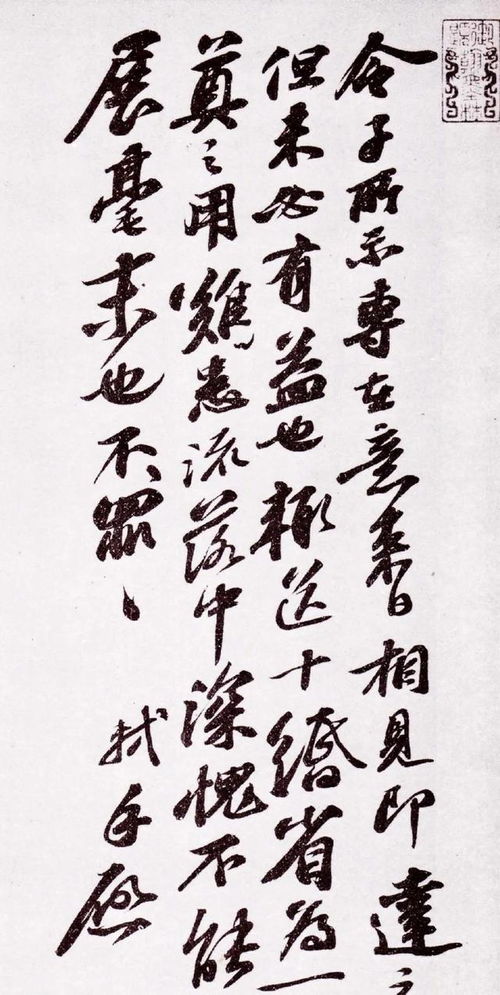 令子所示專在意來日相見即達之
但未必有益也輒送十緡省為一
奠之用難患流落中深愧不能
展毫末也不罪〻
軾手啟